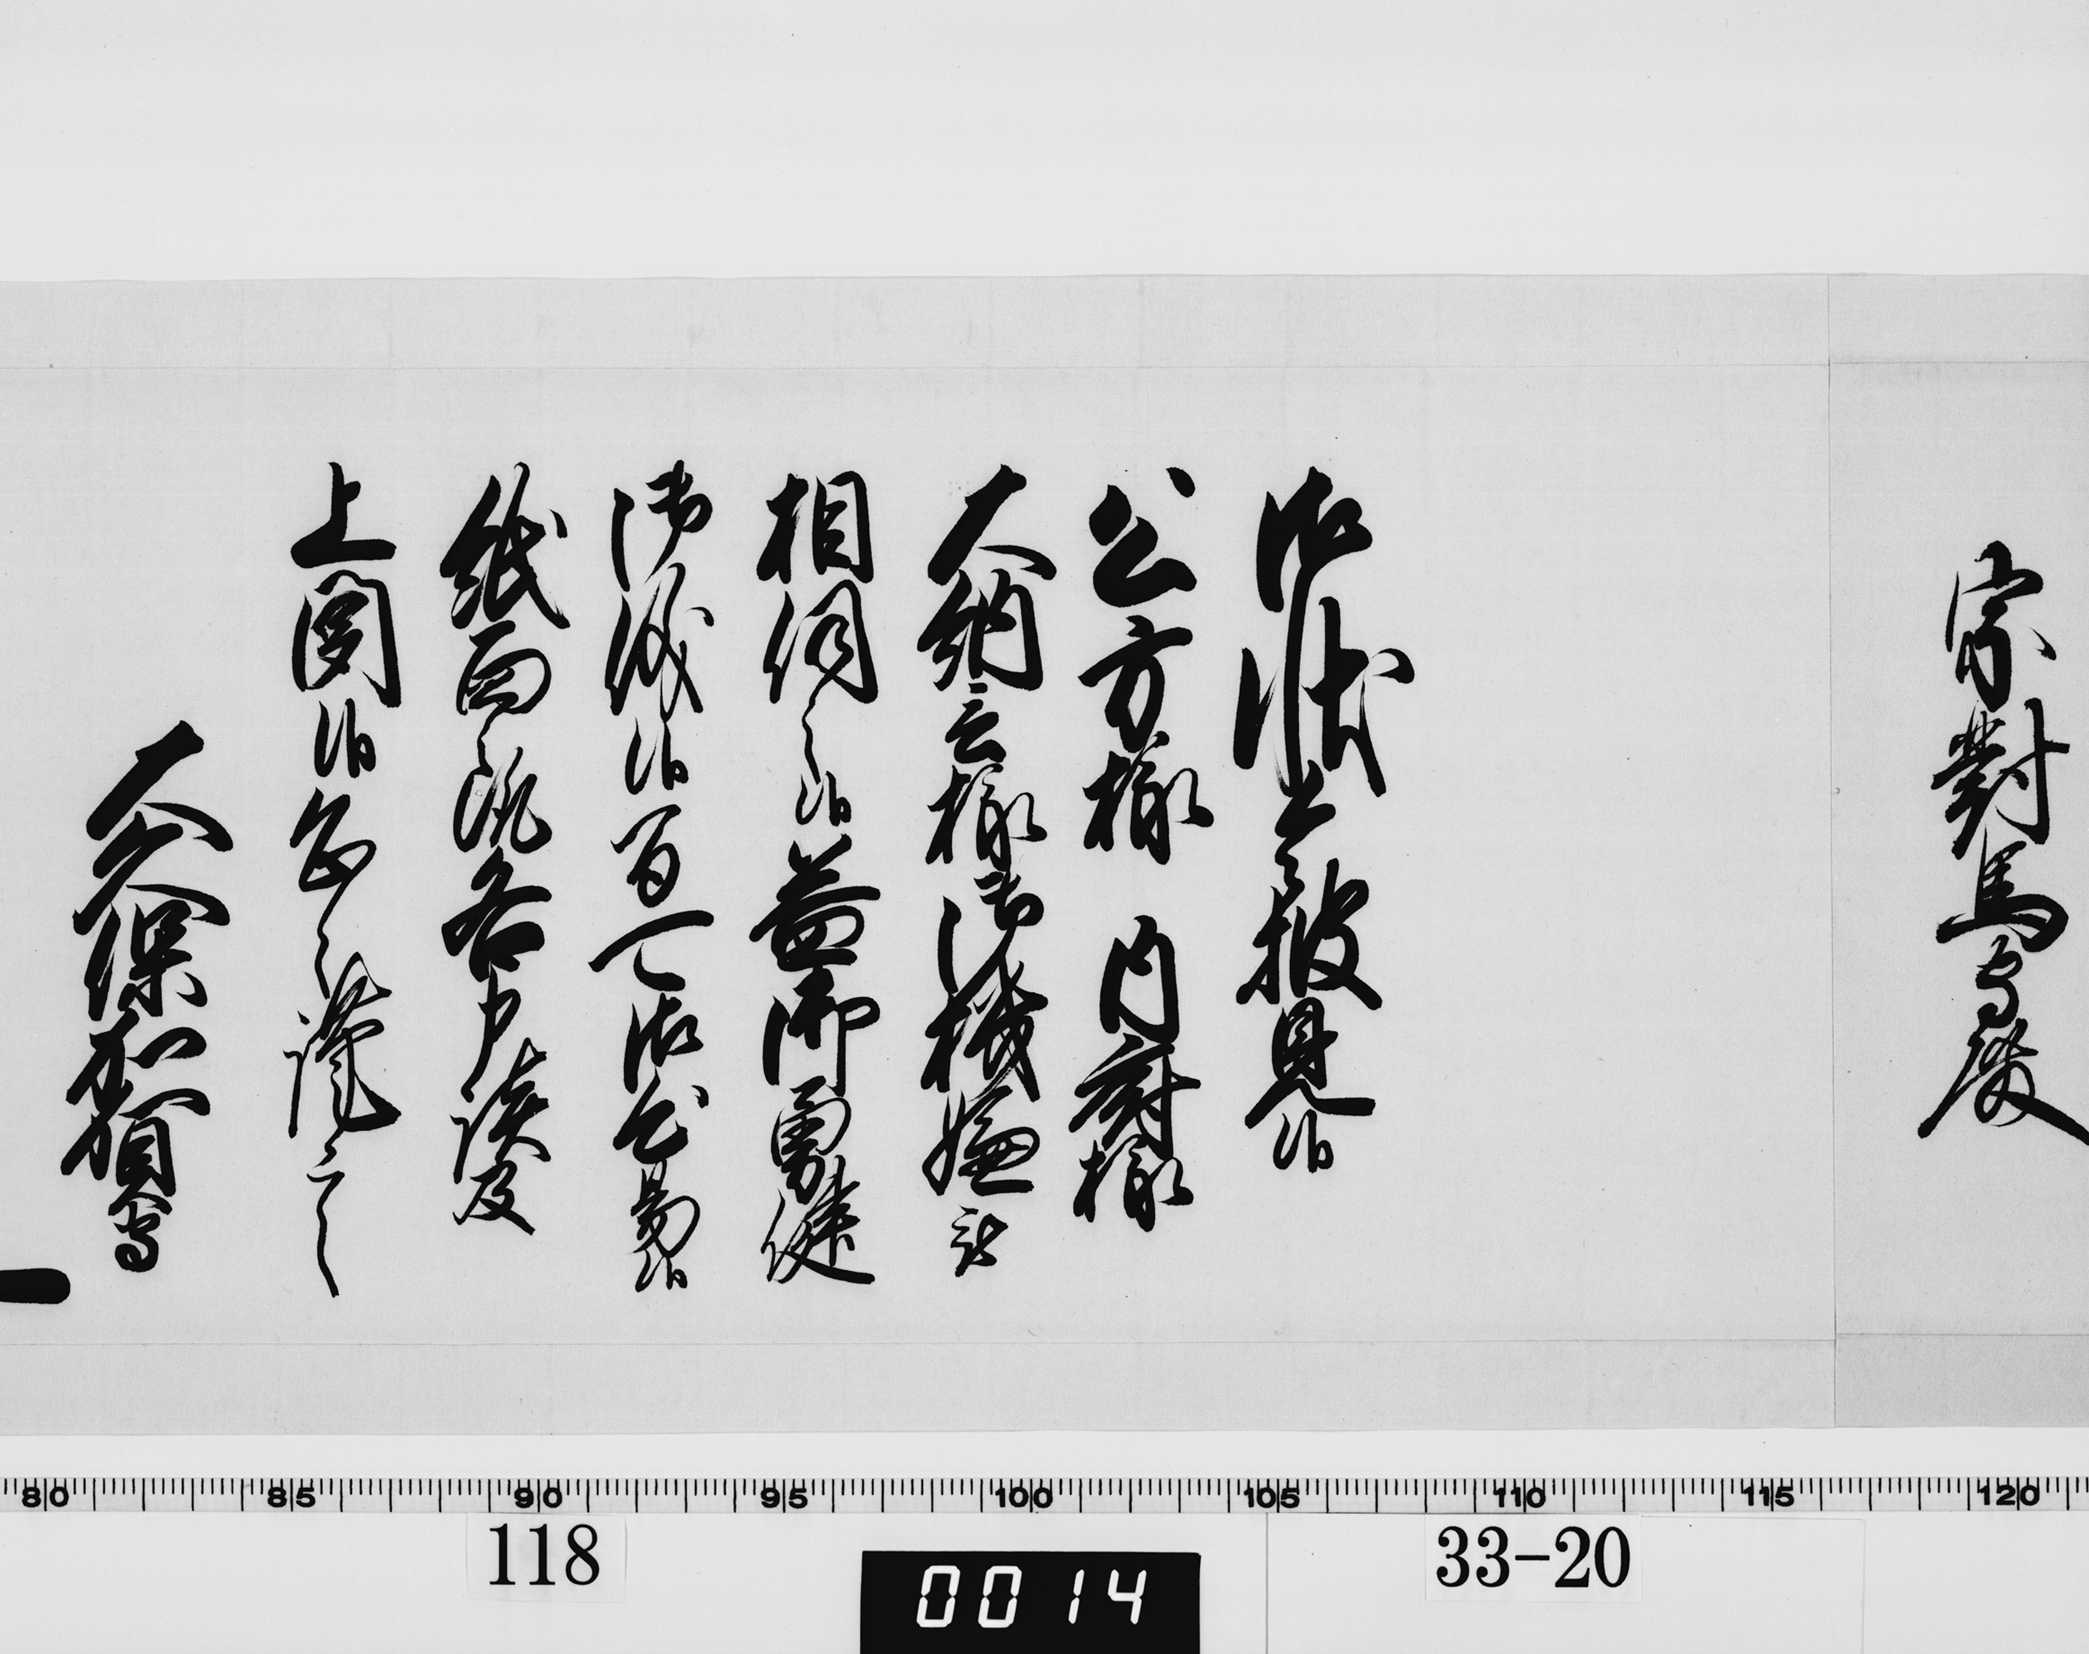 宗對馬守殿
御状令披見候
公方様 内府様
大納言様御機嫌被
相伺之候益御勇健
御儀候間可御心易候
紙面之趣各申談及
上聞候恐々謹言
大久保加賀守
80 85 90 95 100 105 110 115 120
118
0014
33-20